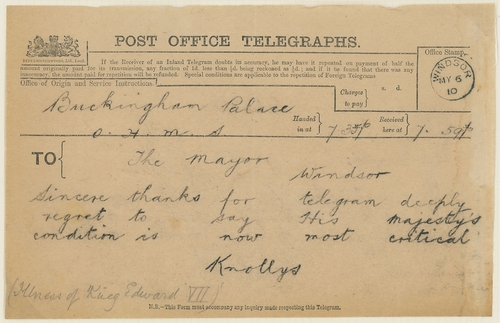 POST OFFICE TELEGRAPHS.
If the Receiver of an Inland Telegram doubts its accuracy, he may have it repeated on payment of half the
amount originally paid for its transmission, any fraction of 1d. less than ½d. being reckoned as ½d.; and if it be found that there was any
inaccuracy, the amount paid for repetition will be refunded. Special conditions are applicable to the repetition of Foreign Telegrams.
Office Stamp.
WINDSOR
MY 6
10
Office of Origin and Service Instructions.
Charges to pay
s. d.
Buckingham Palace
O. H. M. S
Handed in at 7.35p
Received here at 7.59p
TO The Mayor
Windsor
Sincere thanks for telegram deeply
regret to say His majesty's
condition is now most critical
Knollys
(Illness of King Edward VII)
N.B.—This Form must accompany any inquiry made respecting this Telegram.